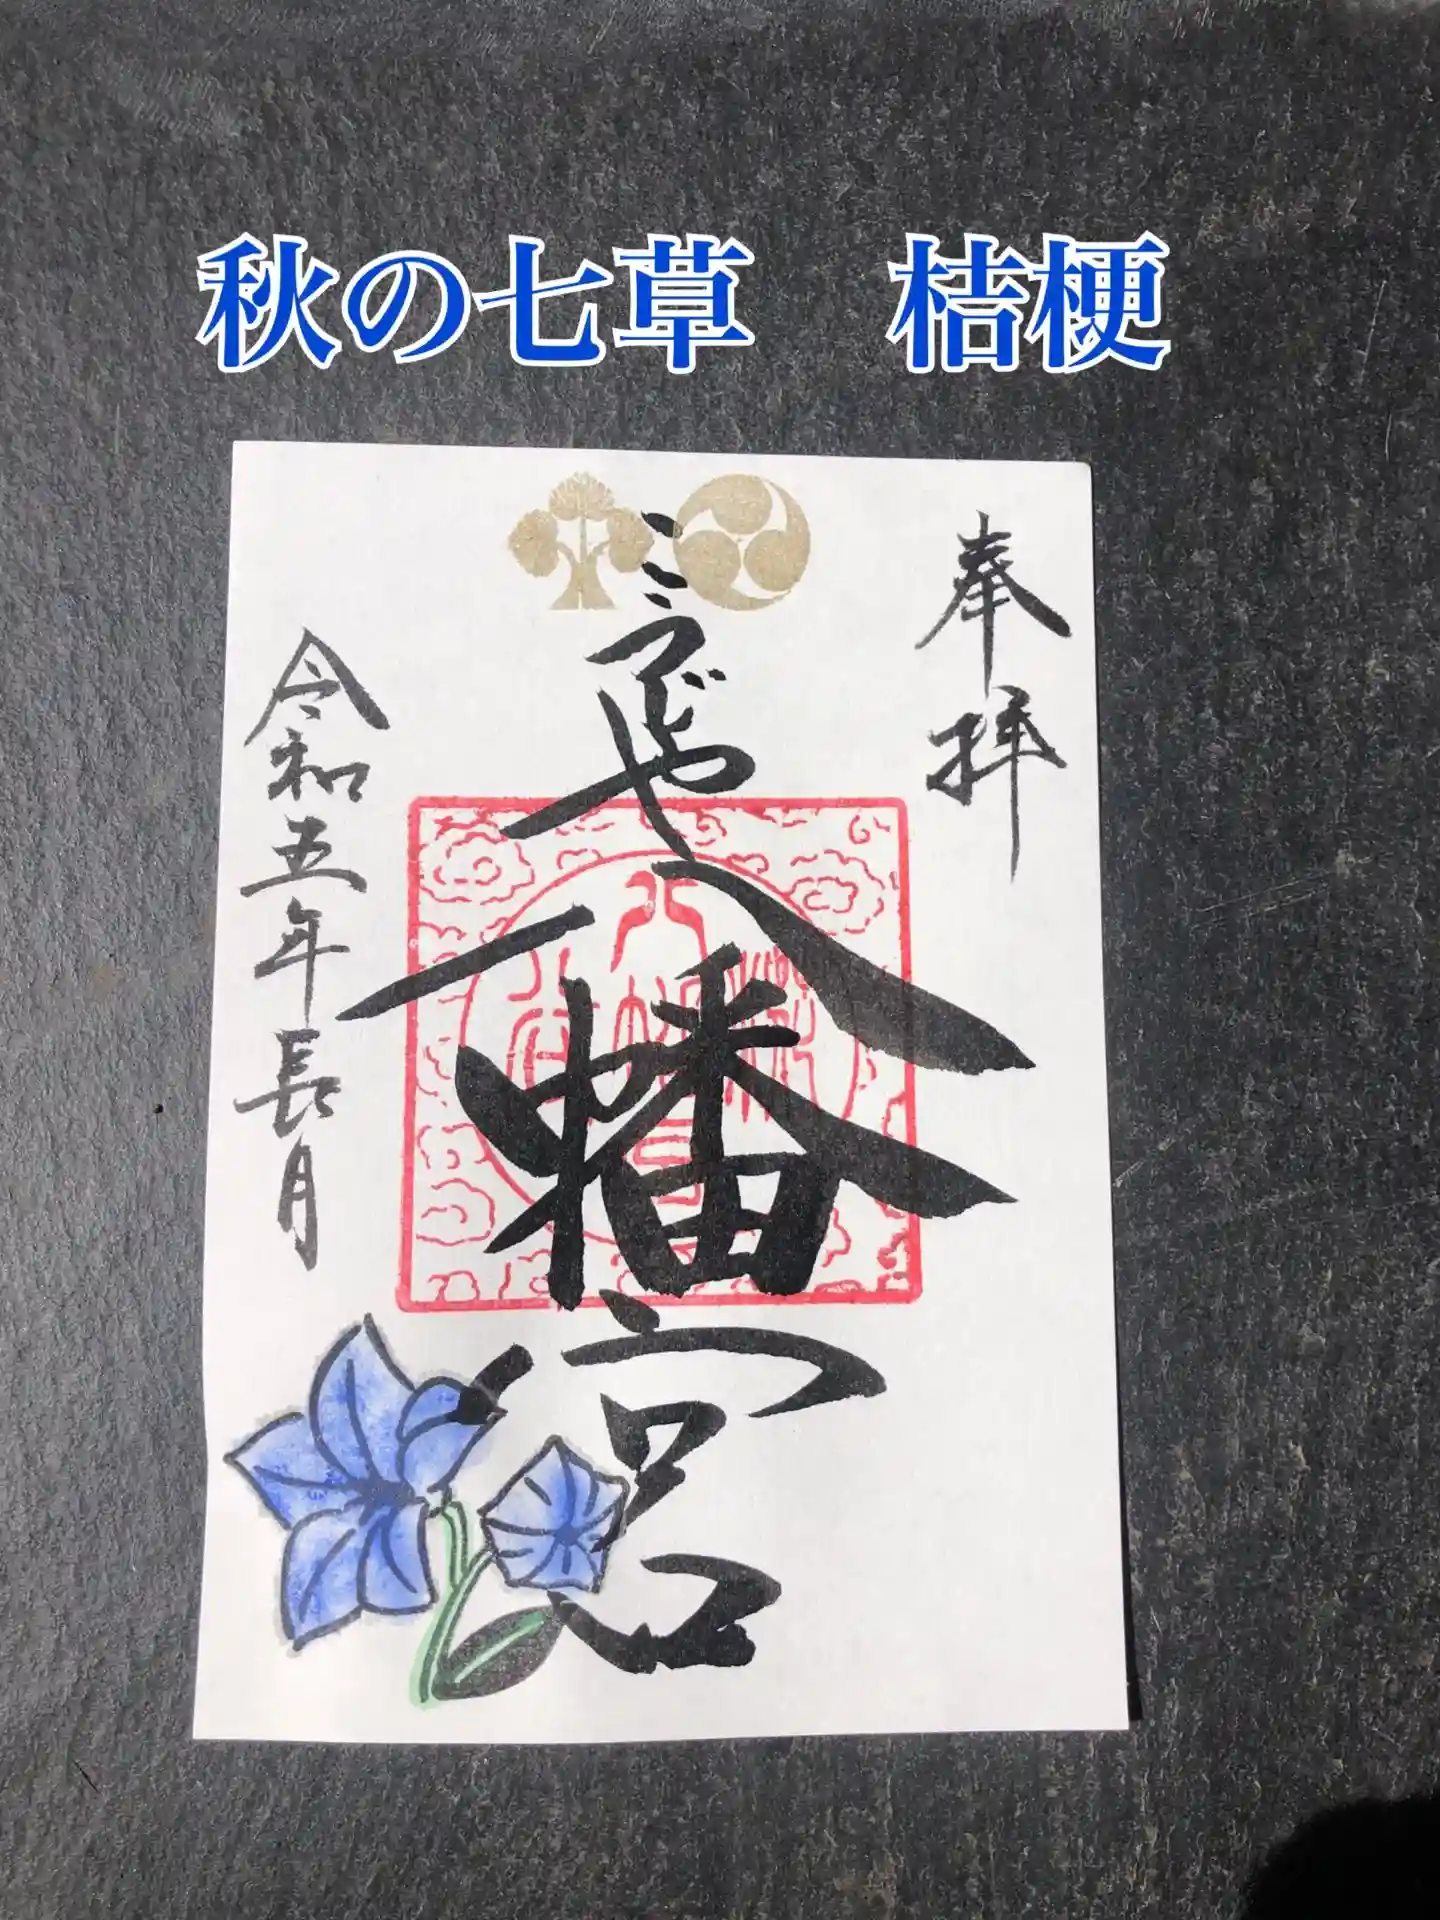 秋の七草　桔梗
奉拝
こうじや八幡宮
令和五年長月